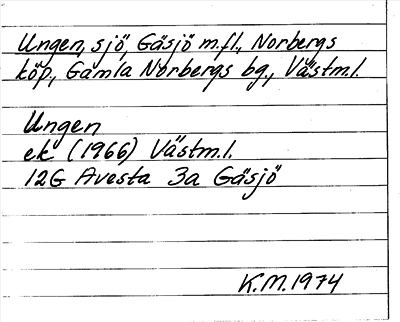 Ungen, sjö, Gäsjö m.fl., Norbergs
köp., Gamla Norbergs bg., Västml.
Ungen
ek (1966) Västm.l.
12G Avesta 3a Gäsjö
K.M. 1974